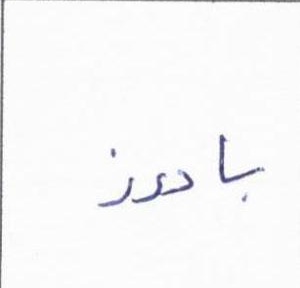 با درز